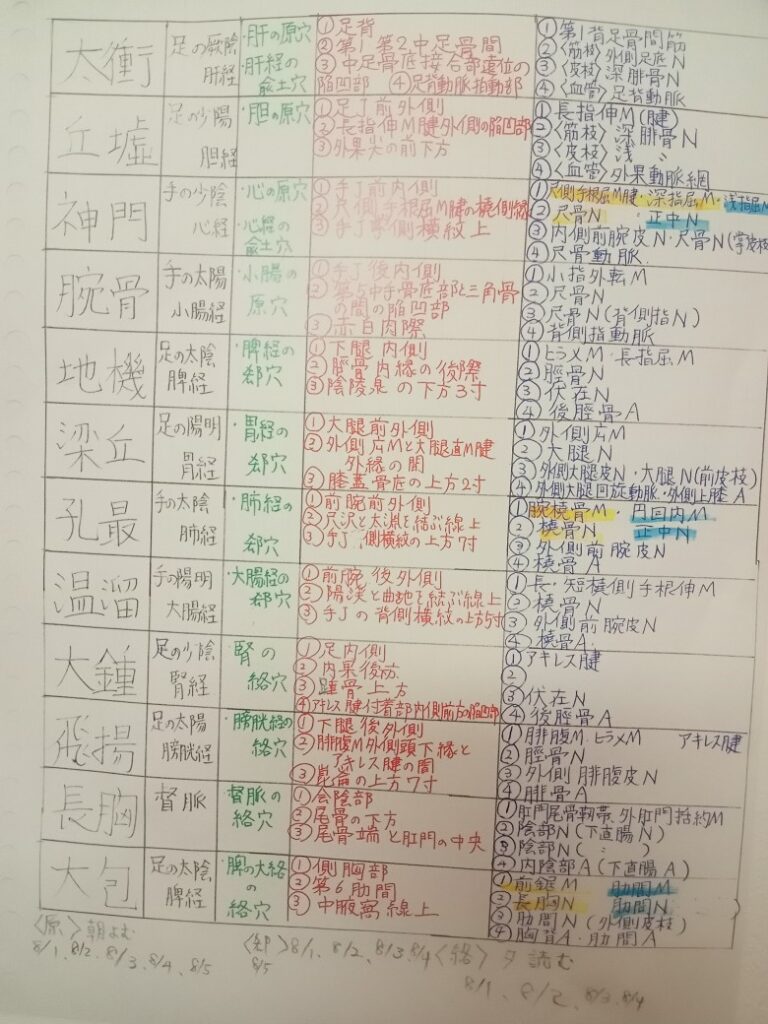 太衝
足の厥陰
肝経
・肝の原穴
・肝経の
兪土穴
①足背
②第1第2中足骨間
③中足骨底接合部遠位の
陥凹部 ④足背動脈拍動部
①第1背足骨間筋
②〈筋枝〉外側足底N
③〈皮枝〉深腓骨N
④〈血管〉足背動脈
丘墟
足の少陽
胆経
・胆の原穴
①足丁前外側
②長指伸M腱外側の陥凹部
③外果尖の前下方
①長指伸M(腱)
②〈筋枝〉深腓骨N
③〈皮枝〉浅 〃
④〈血管〉外果動脈網
神門
手の少陰
心経
・心の原穴
・心経の
兪土穴
①手丁前内側
②尺側手根屈M腱の橈側縁
③手丁掌側横紋上
①尺側手根屈M腱・深指屈M・浅指屈M
②尺骨N ・正中N
③内側前腕皮N・尺骨N(掌皮枝)
④尺骨動脈
腕骨
手の太陽
小腸経
・小腸の
原穴
①手丁後内側
②第5中手骨底部と三角骨
の間の陥凹部
③赤白肉際
①小指外転M
②尺骨N
③尺骨N(背側指N)
④背側指動脈
地機
足の太陰
脾経
・脾経の
郄穴
①下腿内側
②脛骨内縁の後際
③陰陵泉の下方3寸
①ヒラメM・長指屈M
②脛骨N
③伏在N
④後脛骨A
梁丘
足の陽明
胃経
・胃経の
郄穴
①大腿前外側
②外側広Mと大腿直M腱
外縁の間
③膝蓋骨底の上方2寸
①外側広M
②大腿N
③外側大腿皮N・大腿N(前皮枝)
④外側大腿回旋動脈・外側上膝A
孔最
手の太陰
肺経
・肺経の
郄穴
①前腕前外側
②尺沢と太淵を結ぶ線上
③手丁掌側横紋の上方7寸
①腕橈骨M・円回内M
②橈骨N 正中N
③外側前腕皮N
④橈骨A
温溜
手の陽明
大腸経
・大腸経の
郄穴
①前腕後外側
②陽渓と曲池を結ぶ線上
③手丁の背側横紋の上方5寸
①長・短橈側手根伸M
②橈骨N
③外側前腕皮N
④橈骨A.
大鍾
足の少陰
腎経
・腎の
絡穴
①足内側
②内果後方
③踵骨上方
④アキレス腱付着部内側前方の陥凹部
①アキレス腱
②
③伏在N
④後脛骨A
飛揚
足の太陽
膀胱経
・膀胱経の
絡穴
①下腿後外側
②腓腹M外側頭下縁と
アキレス腱の間
③崑崙の上方7寸
①腓腹M・ヒラメM アキレス腱
②脛骨N
③外側腓腹皮N
④腓骨A
長胸
督脈
督脈の
絡穴
①会陰部
②尾骨の下方
③尾骨端と肛門の中央
①肛門尾骨靭帯、外肛門括約M
②陰部N(下直腸N)
③陰部N( 〃 )
④内陰部A(下直腸A)
大包
足の太陰
脾経
・脾の大絡
の
絡穴
①側胸部
②第6肋間
③中腋窩線上
①前鋸M 肋間M
②長胸N 肋間N
③肋間N(外側皮枝)
④胸背A・肋間A
〈原〉朝よむ
8/1、8/2、8/3、8/4、8/5
〈郄〉8/1、8/2、8/3、8/4
8/5
〈絡〉夕読む
8/1、8/2、8/3、8/4